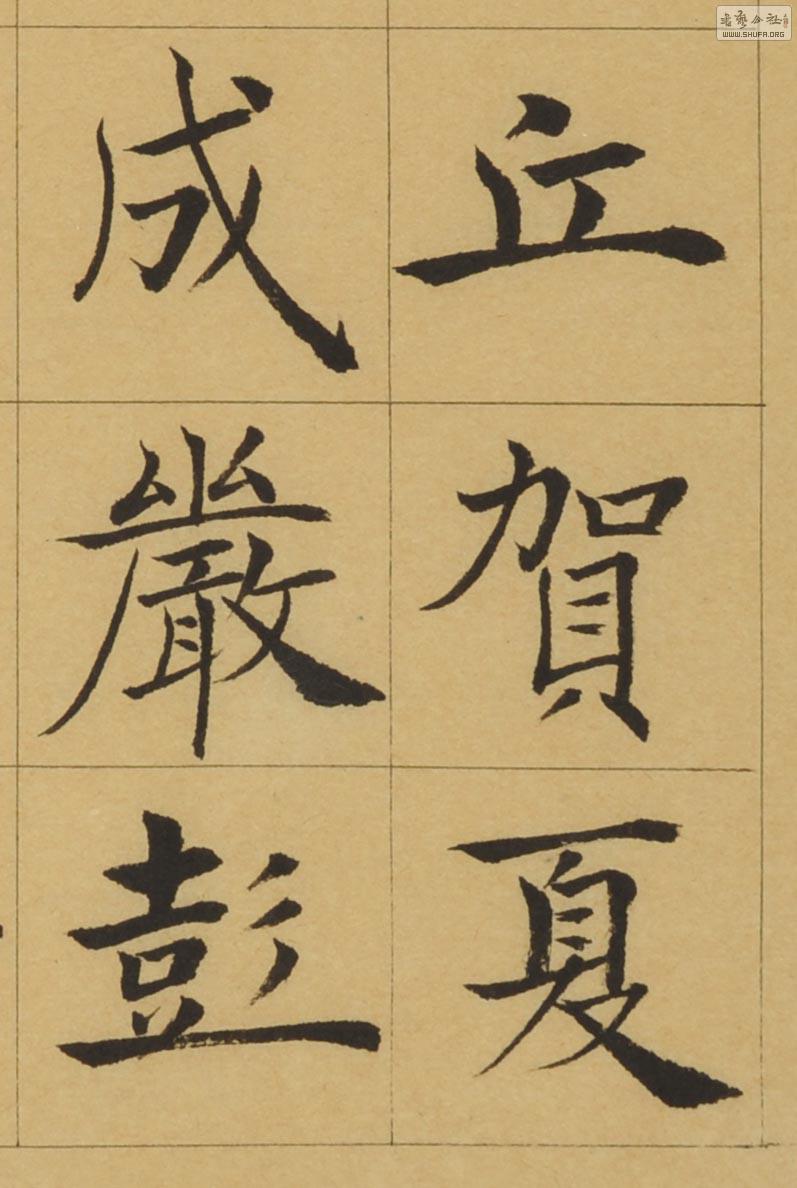 丘賀夏
成嚴彭
書藝公社
WWW.SHUFA.ORG